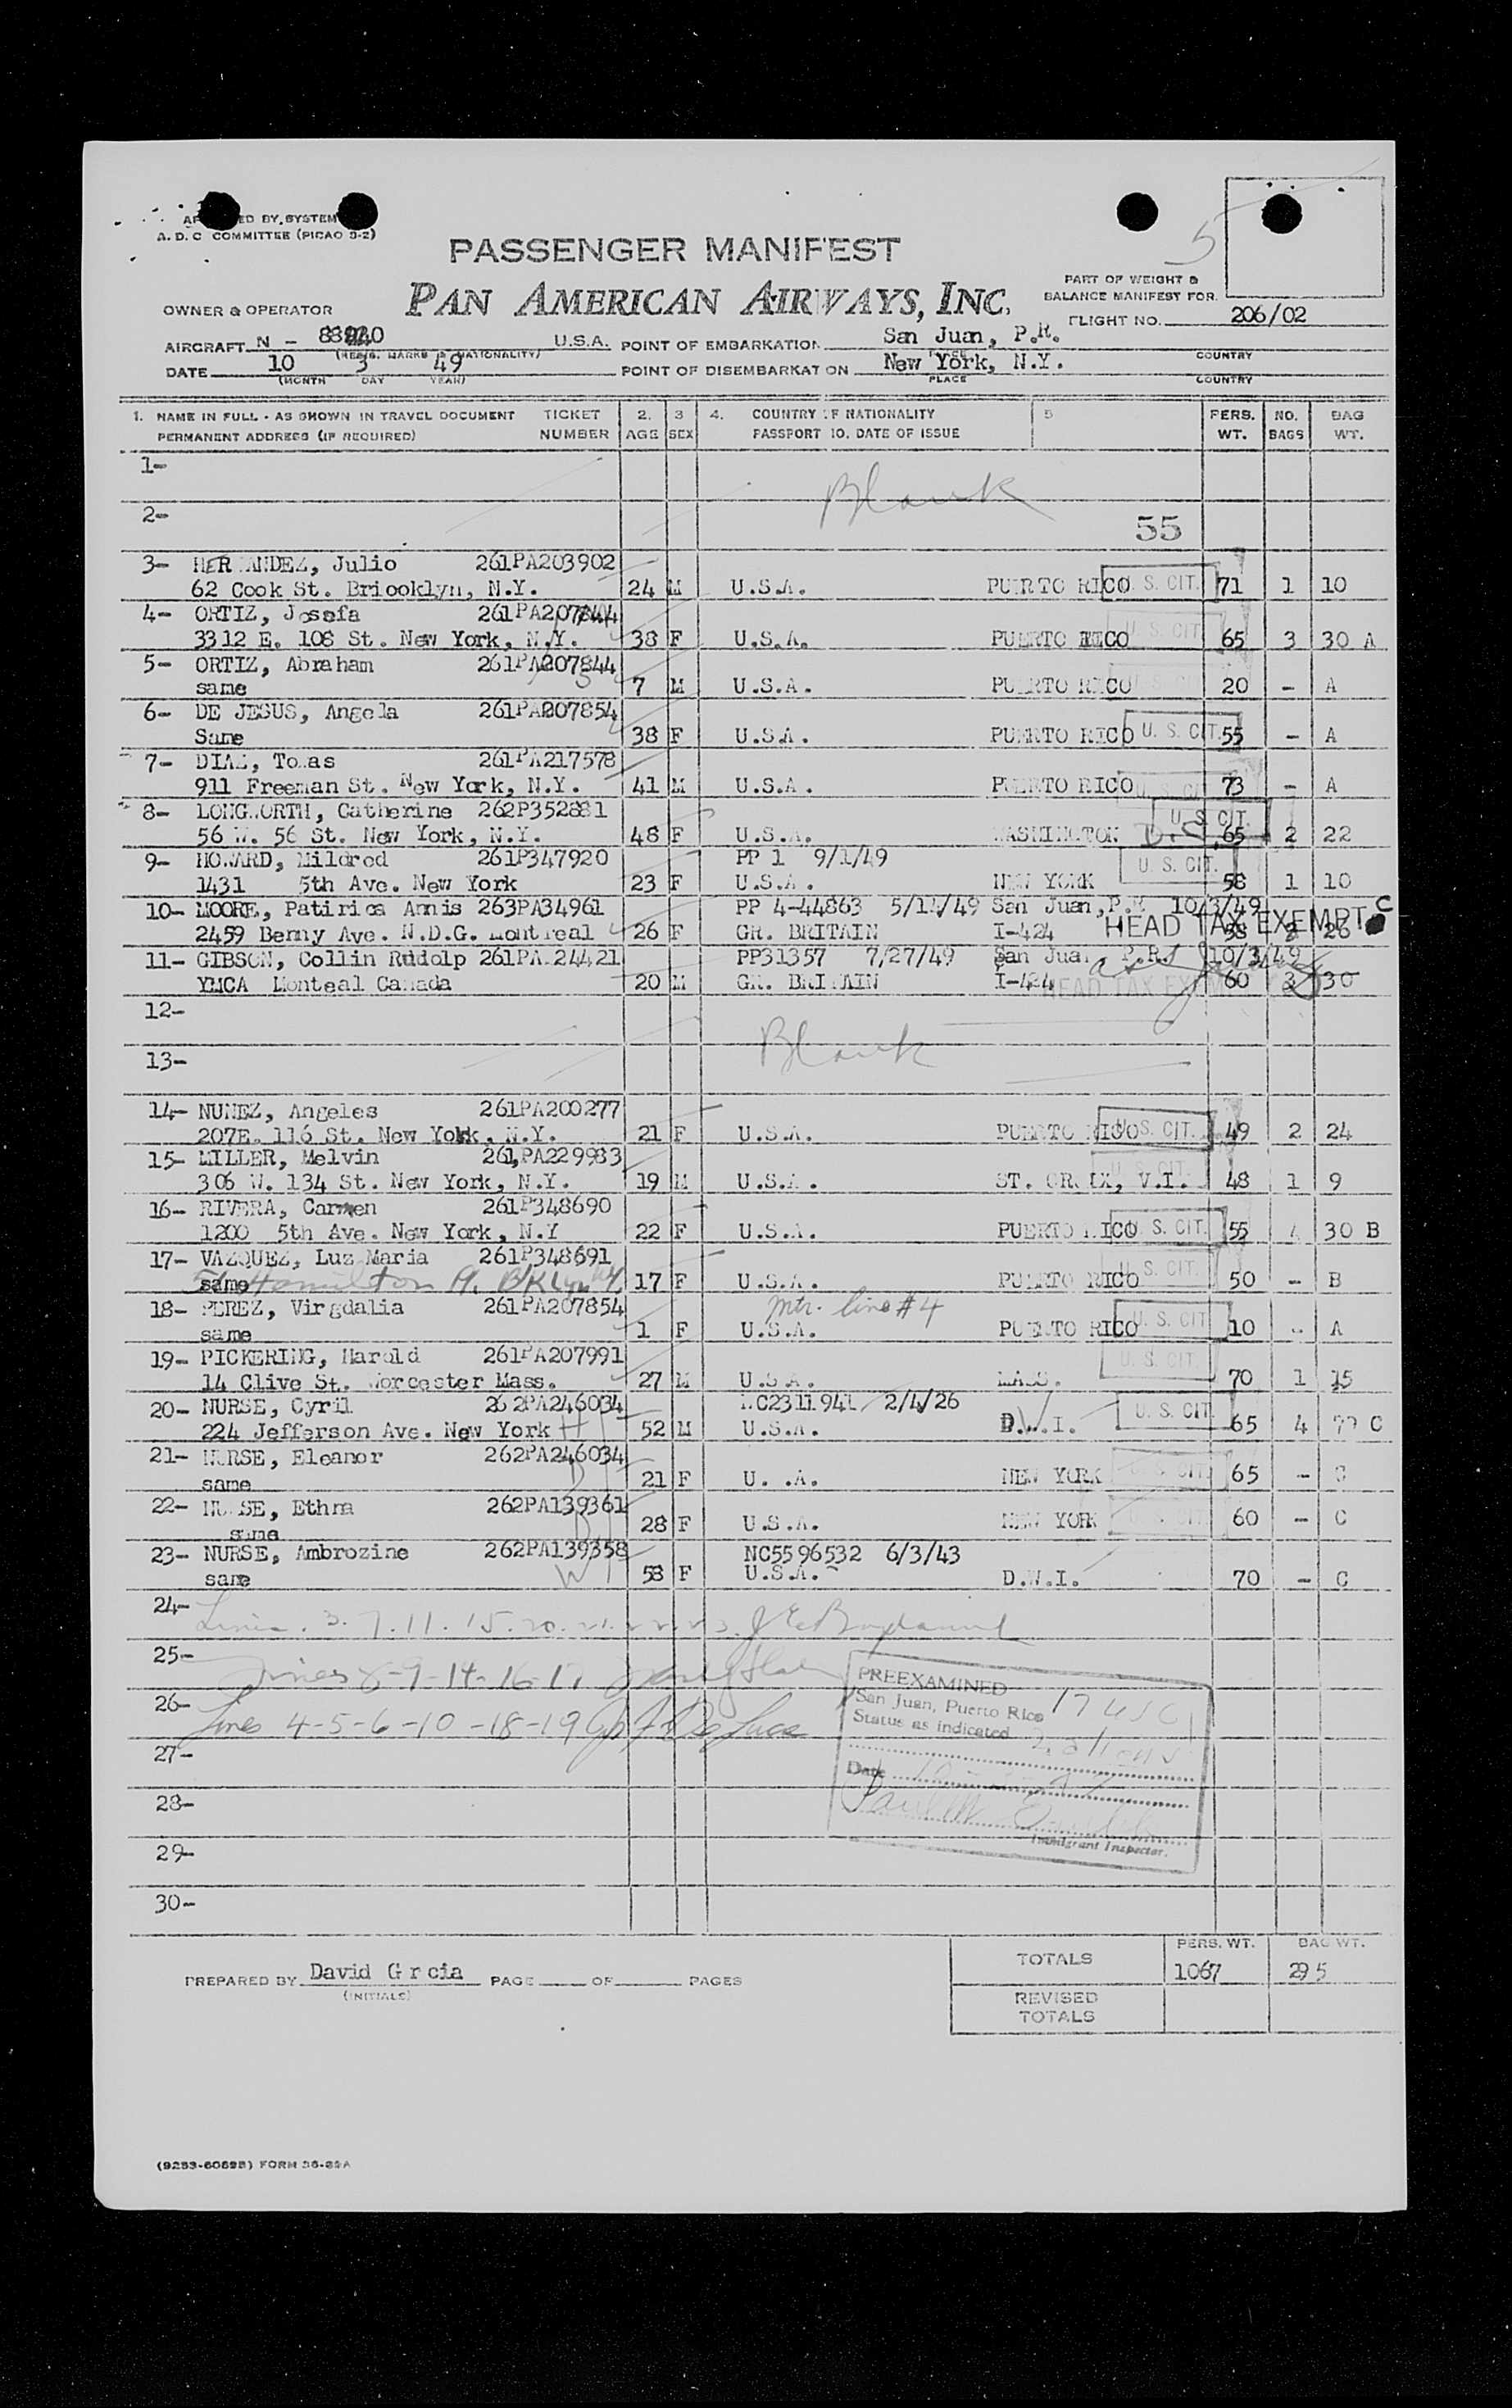 BY SYSTEM
A. D. C COMMITTEE (PICAO 9-2)
5
PASSENGER MANIFEST
PAN AMERICAN AIRWAYS, INC.
PART OF WEIGHT &
BALANCE MANIFEST FOR
FLIGHT NO. 206/02
OWNER & OPERATOR
AIRCRAFT N - U.S.A. POINT OF EMBARKATION San Juan, P.R.
(REGIS. MARKS & NATIONALITY) PLACE COUNTRY
DATE 10 3 49 POINT OF DISEMBARKAT ON New York, N.Y.
(MONTH DAY YEAR) PLACE COUNTRY
1. NAME IN FULL - AS SHOWN IN TRAVEL DOCUMENT TICKET 2. 3 4. COUNTRY OF NATIONALITY 5 PERS. NO. BAG
PERMANENT ADDRESS (IF REQUIRED) NUMBER AGE SEX PASSPORT NO. DATE OF ISSUE WT. BAGS WT.
1-
Blank
2- 55
3- HERNANDEZ, Julio 261PA203902
62 Cook St. Briooklyn, N.Y. 24 M U.S.A. PUERTO RICO U. S. CIT. 71 1 10
4- ORTIZ, Josefa 261PA207844
3312 E. 108 St. New York, N.Y. 38 F U.S.A. PUERTO RICO U. S. CIT. 65 3 30 A
5- ORTIZ, Abraham 261PA207844
same 7 M U.S.A. PUERTO RICO U. S. CIT. 20 - A
6- DE JESUS, Angela 261PA207854
Same 38 F U.S.A. PUERTO RICO U. S. CIT. 55 - A
7- DIAZ, Tomas 261PA217578
911 Freeman St. New York, N.Y. 41 M U.S.A. PUERTO RICO U. S. CIT. 73 - A
8- LONGWORTH, Catherine 262P352881
56 W. 56 St. New York, N.Y. 48 F U.S.A. WASHINGTON D.C. U. S. CIT. 65 2 22
9- HOWARD, Mildred 261P347920 PP 1 9/1/49
1431 5th Ave. New York 23 F U.S.A. NEW YORK U. S. CIT. 58 1 10
10- MOORE, Patirica Annis 263PA34961 PP 4-44863 5/14/49 San Juan, P.R. 10/3/49
2459 Benny Ave. N.D.G. Montreal 26 F GR. BRITAIN I-424 HEAD TAX EXEMPT 58 2 26 C
11- GIBSON, Collin Rudolp 261PA.24421 PP31357 7/27/49 San Juan P.R. 10/3/49
YMCA Monteal Canada 20 M GR. BRITAIN I-424 HEAD TAX EXEMPT 60 3 30
12-
Blank
13-
14- NUNEZ, Angeles 261PA200277
207E. 116 St. New York, N.Y. 21 F U.S.A. PUERTO RICO U. S. CIT. 49 2 24
15- MILLER, Melvin 261,PA229983
306 W. 134 St. New York, N.Y. 19 M U.S.A. ST. CROIX, V.I. U. S. CIT. 48 1 9
16- RIVERA, Carmen 261P348690
1200 5th Ave. New York, N.Y 22 F U.S.A. PUERTO RICO U. S. CIT. 55 4 30 B
17- VAZQUEZ, Luz Maria 261P348691
same Hamilton Bklyn 17 F U.S.A. PUERTO RICO U. S. CIT. 50 - B
18- PEREZ, Virgdalia 261PA207854 Mtr. line #4
same 1 F U.S.A. PUERTO RICO U. S. CIT. 10 - A
19- PICKERING, Harold 261PA207991
14 Clive St. Worcester Mass. 27 M U.S.A. MASS. U. S. CIT. 70 1 15
20- NURSE, Cyril 262PA246034 NC2311941 2/4/26
224 Jefferson Ave. New York H 52 M U.S.A. D.W.I. U. S. CIT. 65 4 C
21- NURSE, Eleanor 262PA246034
same D 21 F U.S.A. NEW YORK U. S. CIT. 65 - C
22- NURSE, Ethra 262PA139361
same D 28 F U.S.A. NEW YORK U. S. CIT. 60 - C
23- NURSE, Ambrozine 262PA139358 NC5596532 6/3/43
same W 58 F U.S.A. D.W.I. 70 - C
24-
Lines 3. 7. 11. 15. 20. 21. 22. 23.
25-
Lines 8-9-14-16-17
26-
Lines 4-5-6-10-18-19
27-
PREEXAMINED
San Juan, Puerto Rico 17 USC
Status as indicated 2 aliens
Date
Immigrant Inspector.
28-
29-
30-
PREPARED BY David Grcia PAGE OF PAGES
(INITIALS)
TOTALS PERS. WT. 1067 BAG WT. 295
REVISED
TOTALS
(9253-6069B) FORM 36-89A